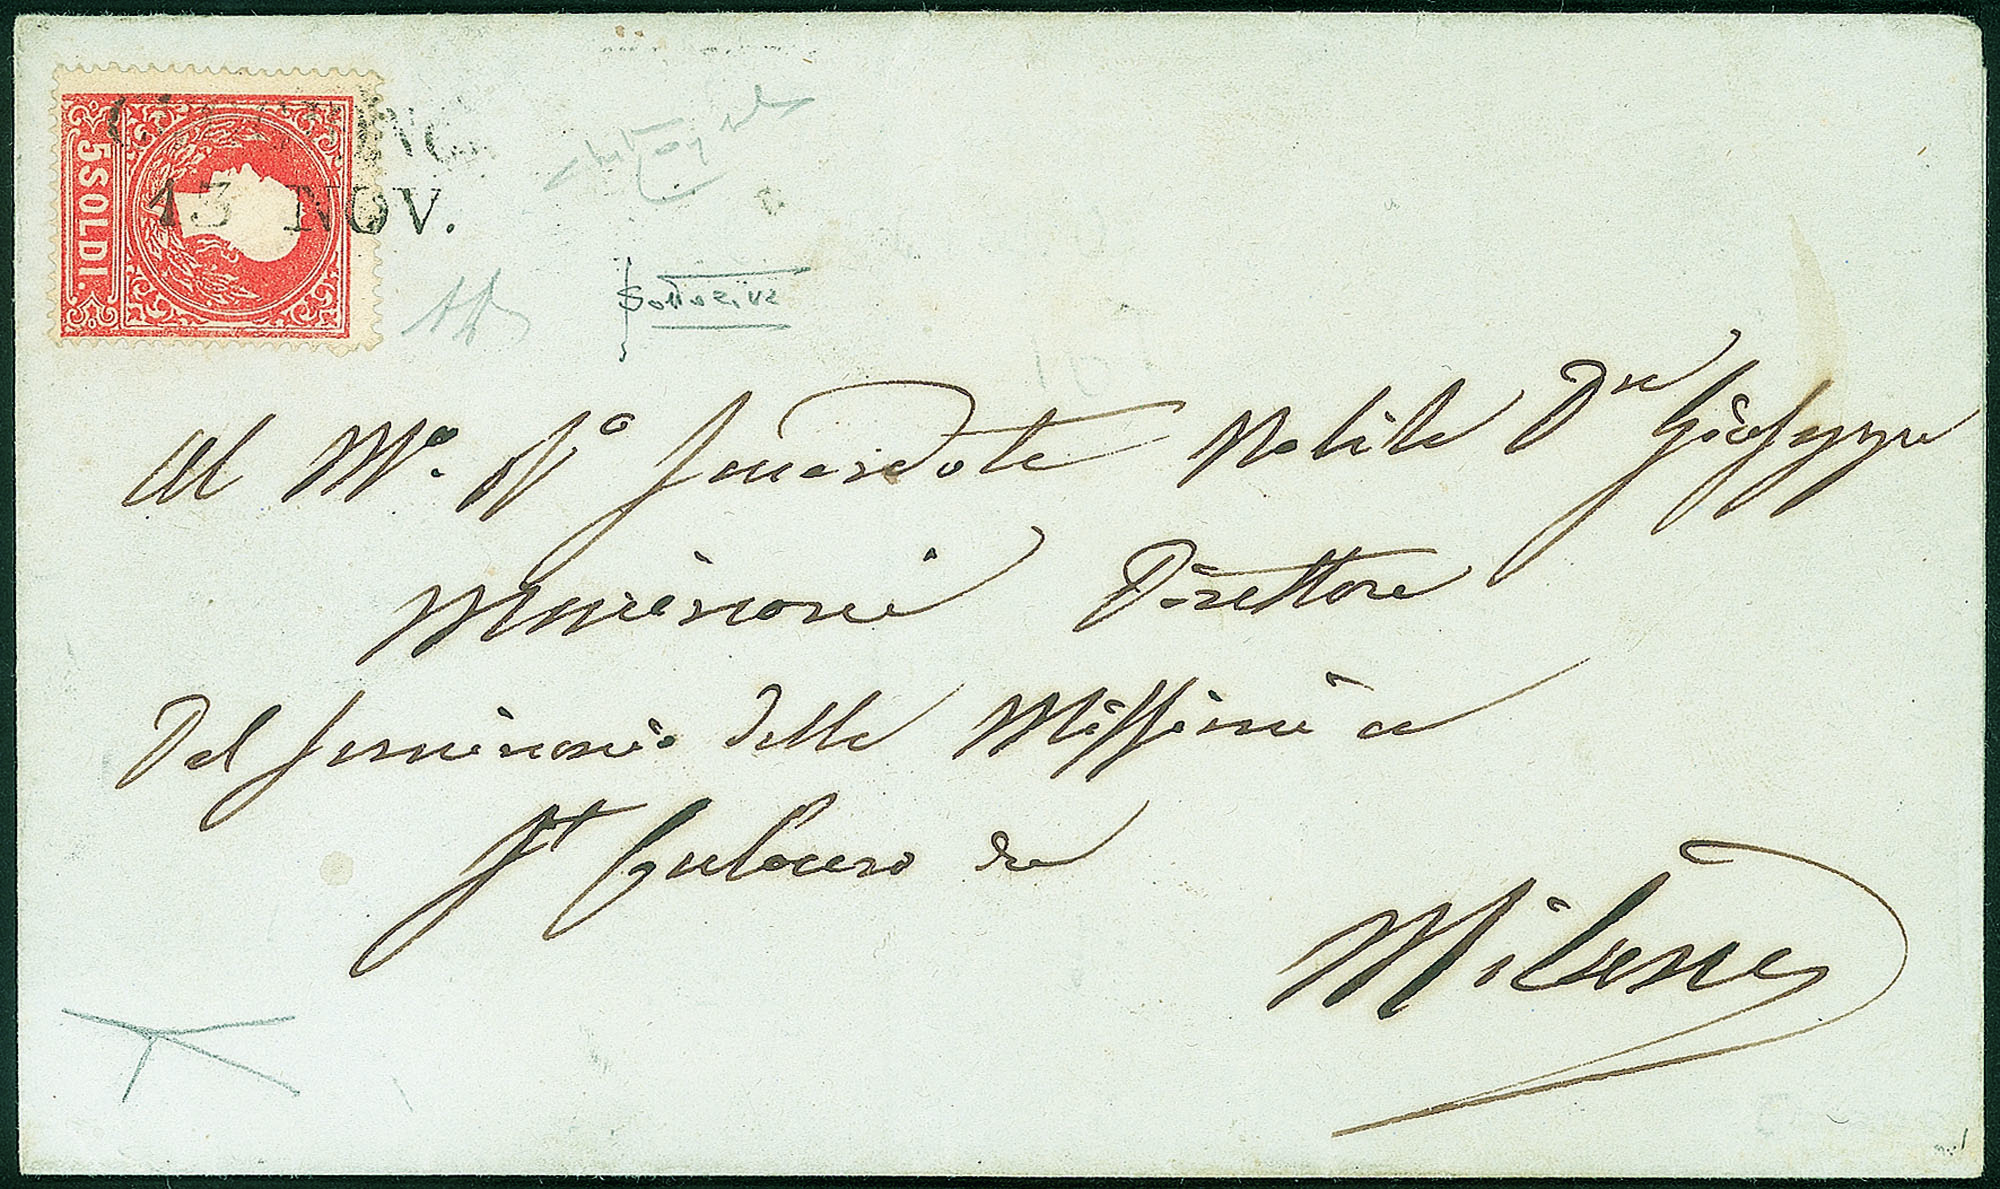 5 SOLDI.
13 NOV.
Sottorive
Al M.o R.o Sacerdote Nobile Dn Giuseppe
Marinoni Direttore
Del Seminario delle Missioni a
St Calocero in
Milano